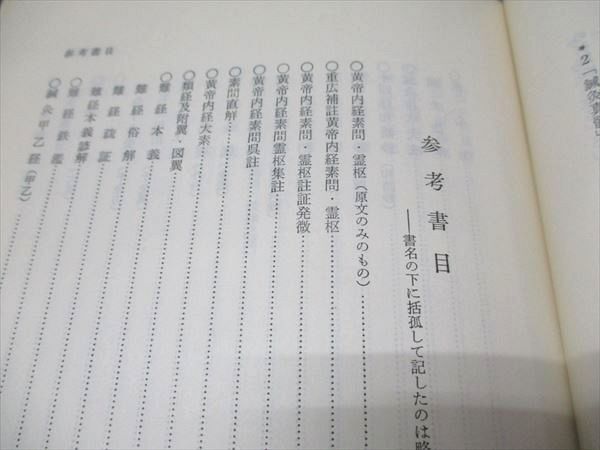 参考書目
――書名の下に括孤して記したのは略
〇黄帝内経素問・霊枢(原文のみのもの)
〇重広補註黄帝内経素問・霊枢
〇黄帝内経素問・霊枢註証発微
〇黄帝内経素問霊枢集註
〇黄帝内経素問呉註
〇素問直解
〇黄帝内経太素
〇類経及附翼・図翼
〇難経本義
難経俗解
難経疏証
難経本義諺解
〇難経鉄鑑
〇鍼灸甲乙経(甲乙)
参考書目